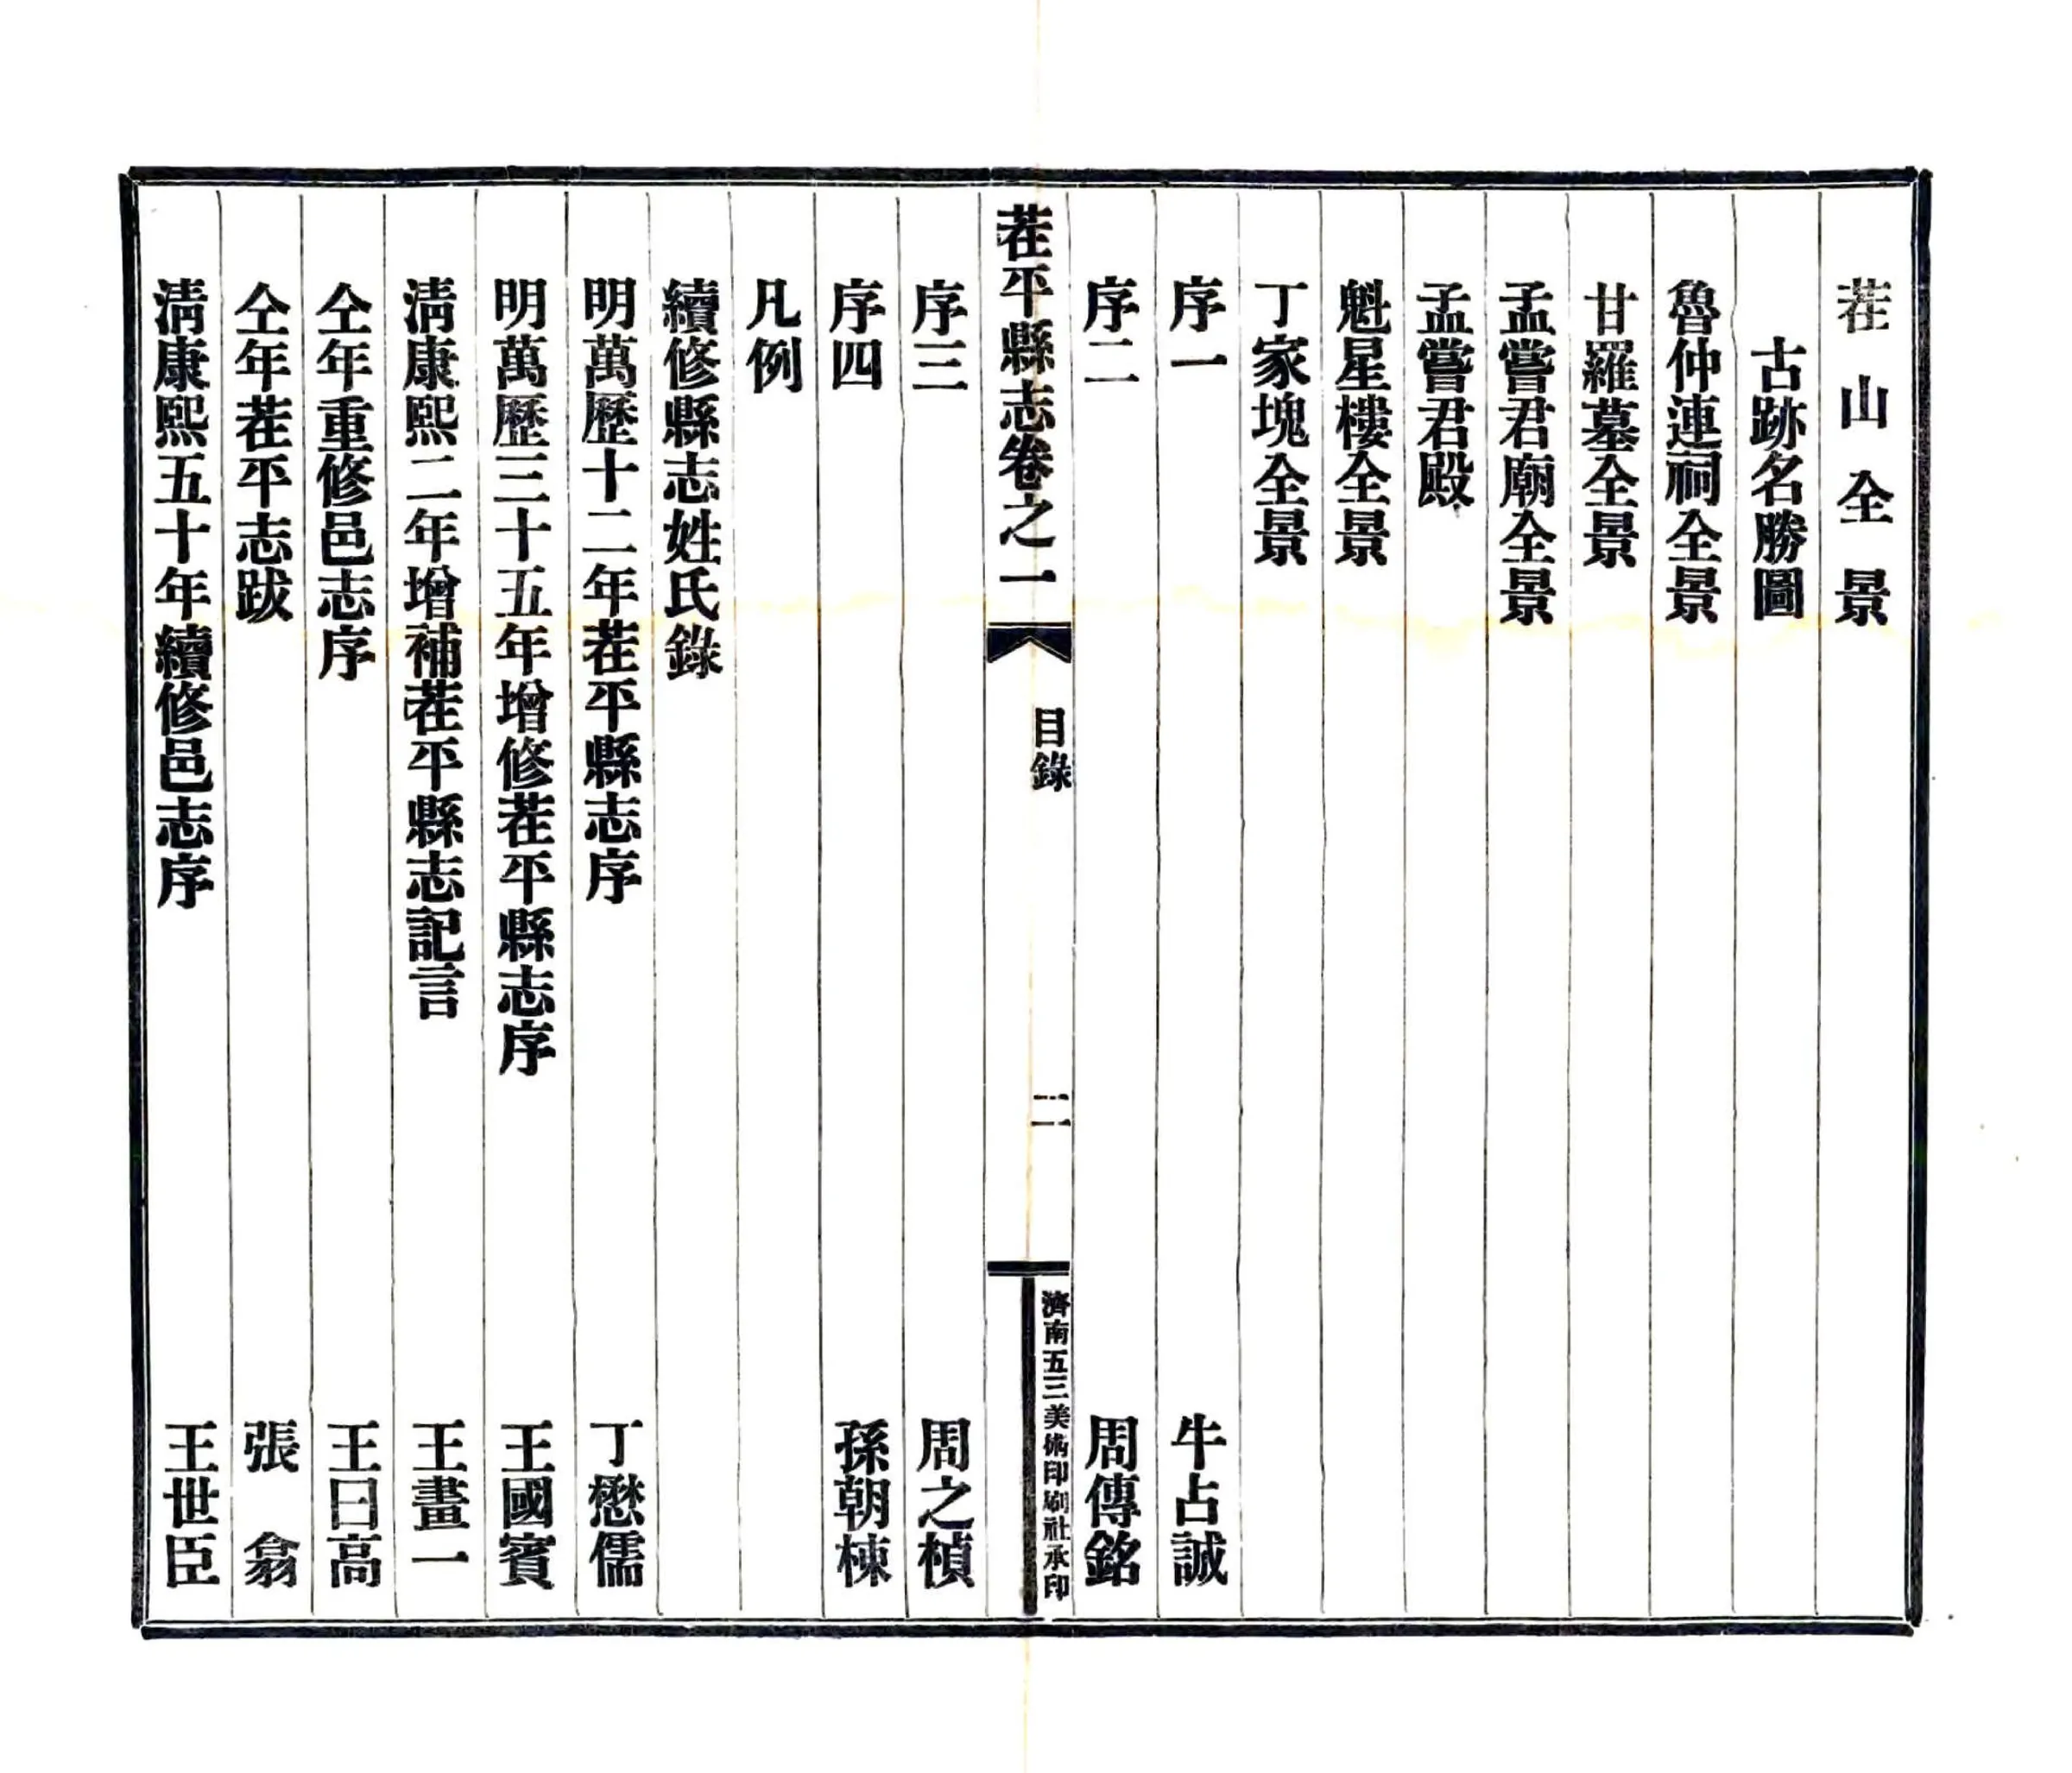 茬山全景
古跡名勝圖
魯仲連祠全景
甘羅墓全景
孟嘗君廟全景
孟嘗君殿
魁星樓全景
丁家塊全景
序一 牛占誠
序二 周傳銘
茬平縣志卷之一 目錄 二 濟南五三美術印刷社承印
序三 周之楨
序四 孫朝棟
凡例
續修縣志姓氏錄
明萬歷十二年茬平縣志序 丁懋儒
明萬歷三十五年增修茬平縣志序 王國賓
淸康熙二年增補茬平縣志記言 王畫一
仝年重修邑志序 王曰高
仝年茬平志跋 張翕
淸康熙五十年續修邑志序 王世臣